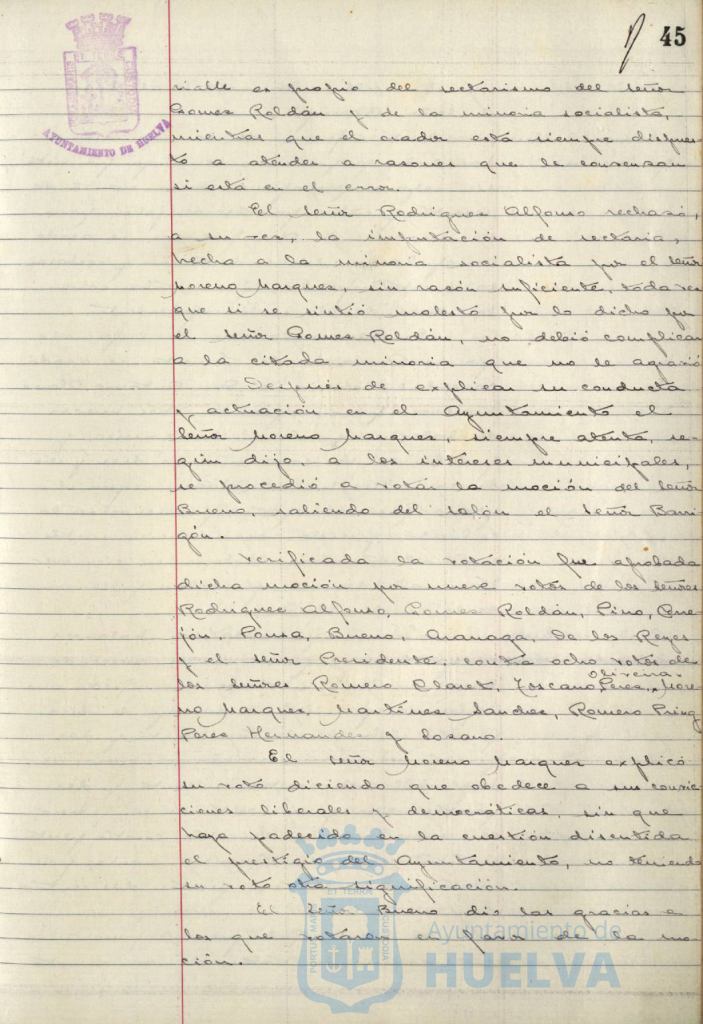 45
AYUNTAMIENTO DE HUELVA
es propio del sectarismo del señor
Gomez Roldán y de la minoria socialista,
mientras que el orador está siempre dispues-
to a atender a razones que le convenzan
si está en el error.
El señor Rodriguez Alfonso rechazó,
a su vez, la imputación de sectaria,
hecha a la minoria socialista por el señor
Moreno Marquez, sin razón suficiente, toda vez
que si se sintió molesto por lo dicho por
el señor Gomez Roldán, no debió complicar
a la citada minoria que no le agravió
Después de explicar su conducta
y actuación en el Ayuntamiento el
señor Moreno Marquez, siempre atenta, se-
gún dijo, a los intereses municipales,
se procedió a votar la moción del señor
Bueno, saliendo del salón el señor Barri-
gón.
Verificada la votación fue aprobada
dicha moción por nueve votos de los señores
Rodriguez Alfonso, Gomez Roldán, Pino,
Ponsa, Bueno, Aranaga, De los Reyes
y el señor Presidente, contra ocho votos de
Oliveira
los señores Romero Claret, Toscano Perez, More-
no Marquez, Martinez Sanchez, Romero
Perez Hernandez y Lozano.
El señor Moreno Marquez explicó
su voto diciendo que obedece a sus convic-
ciones liberales y democráticas, sin que
haya padecido en la cuestión discutida
el prestigio del Ayuntamiento, no teniendo
su voto otra significación.
El señor Bueno dió las gracias a
los que votaron en favor de la mo-
ción.
Ayuntamiento de
HUELVA